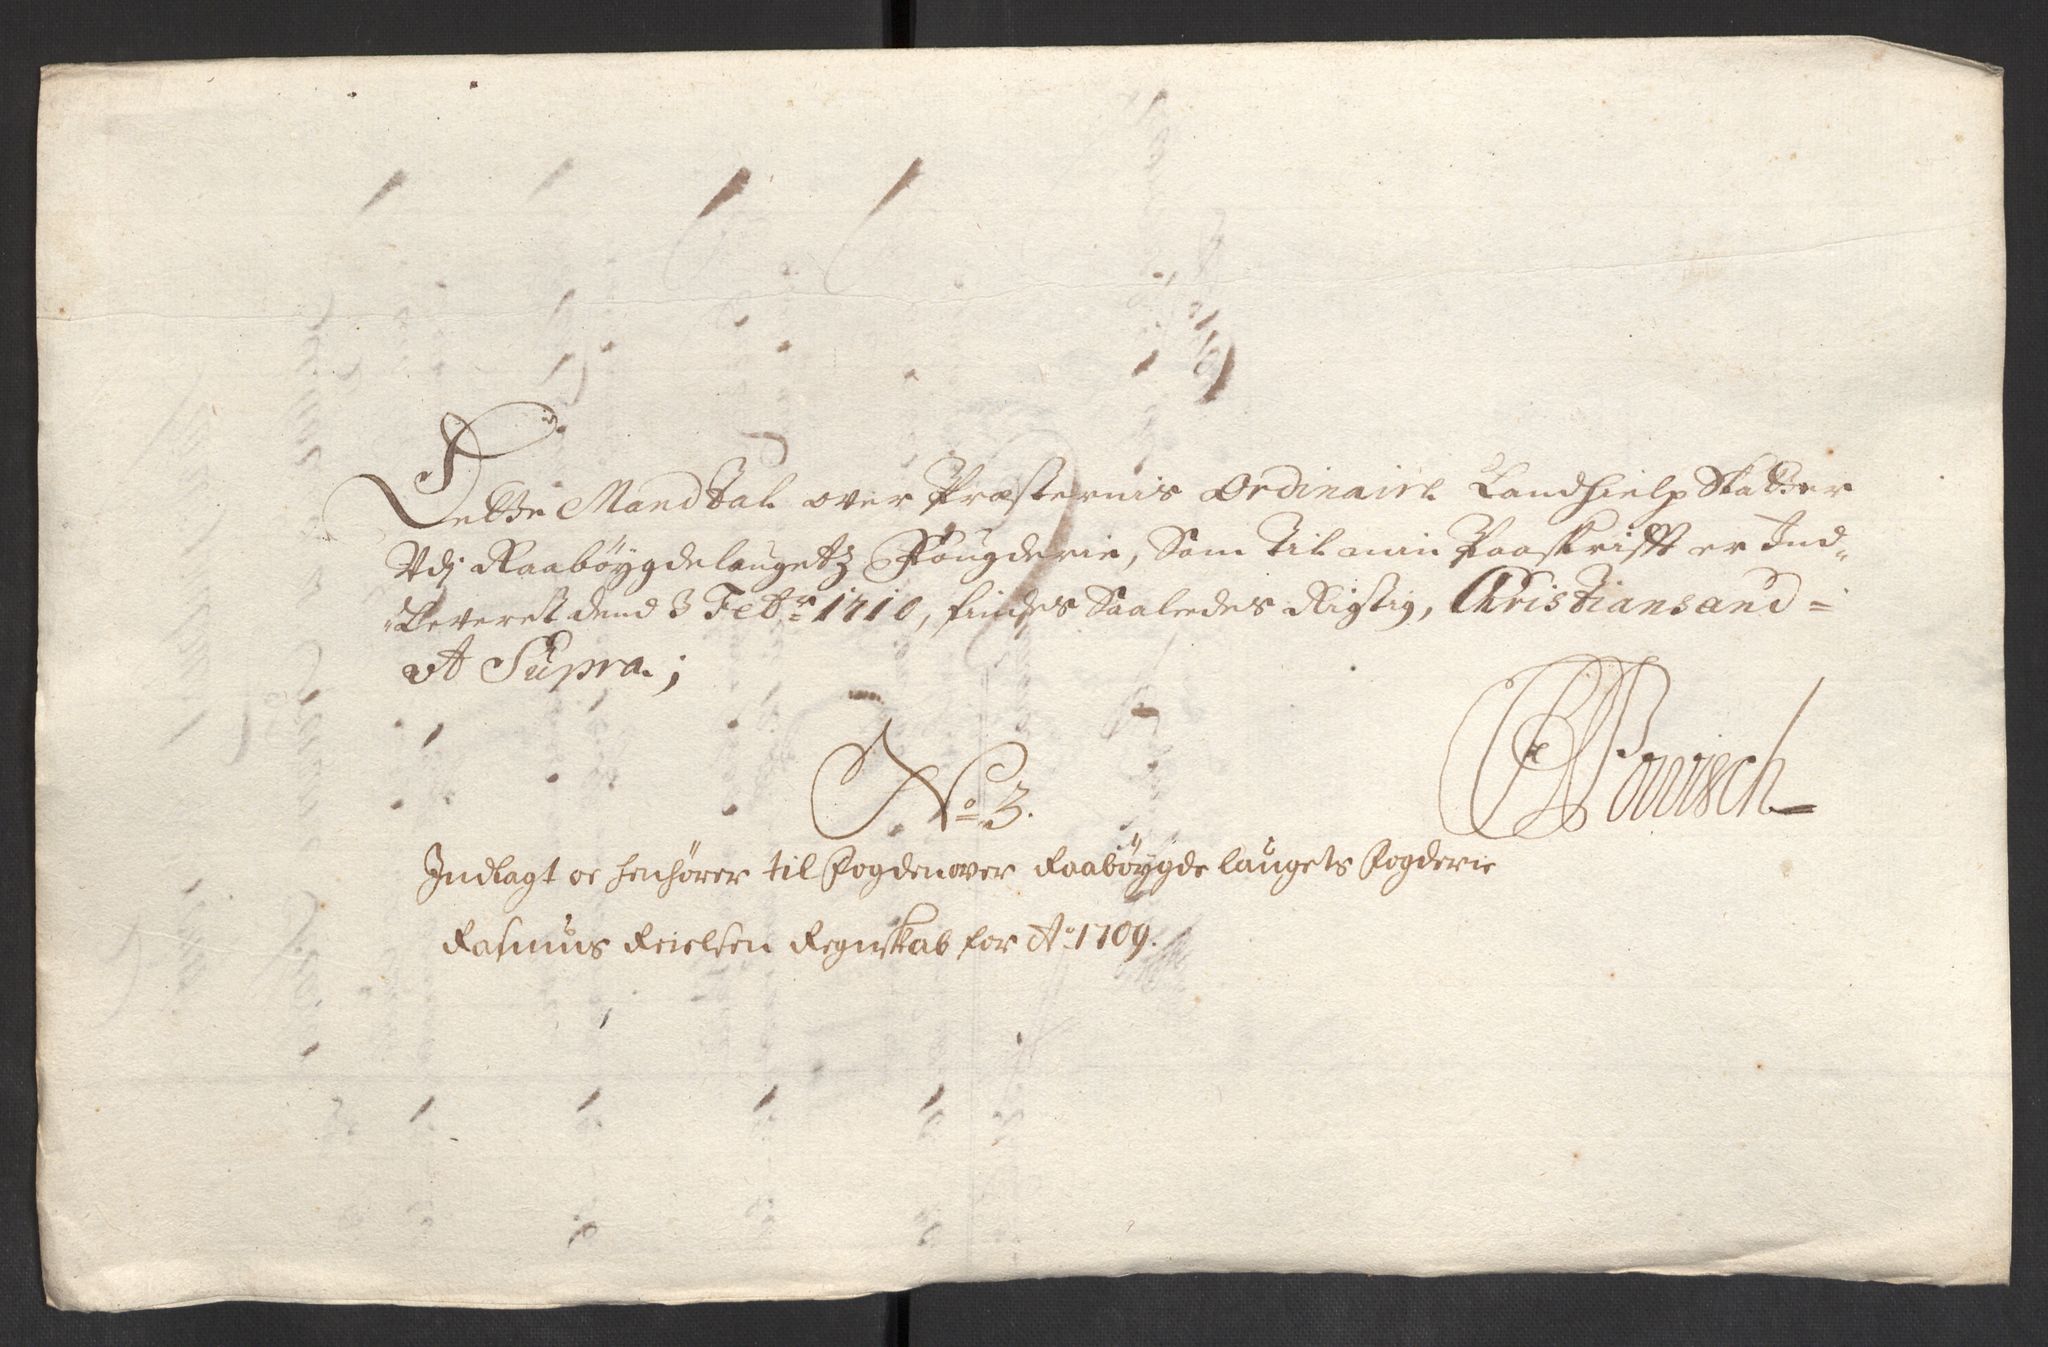 Dette Mandtal over Præsternis Ordinaire Landhielp Skatter
Vdj Raabøygdelaugetz Fougderie, Som Til min Paaskrifft er Ind-
Leveret dend 3 Febr: 1710, findes Saaledes Rigtig, Christiansand =
ut Supra;
No: 3.
Indlagt oc henhörer til Fogden over Raabøygdelaugets Fogderie
Rasmus Reielsen Regnskab for Ao: 1709.